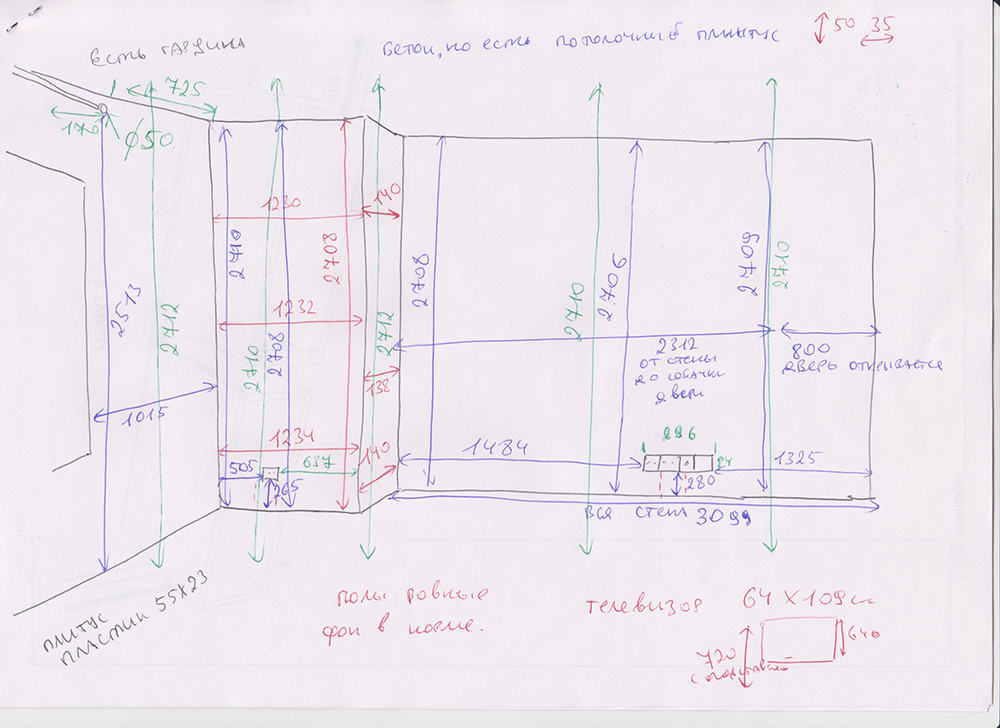 Есть гардина
Бетон, но есть потолочный плинтус
50 35
725
170
Ø50
1230
140
2513
2712
2710
2708
2708
2710
2708
1232
2712
138
1015
1234
140
505
637
265
2708
2710
2706
2709
2710
2312
от стены
до собачки
двери
800
дверь открывается
1484
296
24
280
1325
вся стена 3099
плитус
пластик 55х23
полы ровные
фон в норме.
телевизор 64 х 109см
720
с подставкой
640